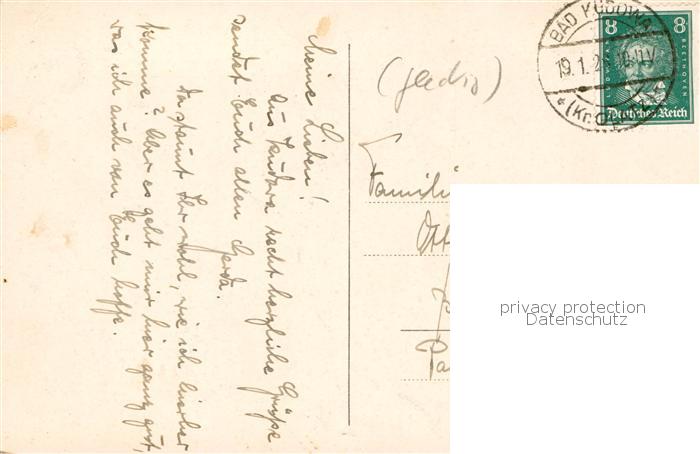 Meine Lieben!
Aus Kudowa recht herzliche Grüße
sendet Euch allen Gerda.
Da staunt Ihr wohl, wie ich hierher
komme? Aber es geht mir hier ganz gut,
was ich auch von Euch hoffe.
Famili
Ott
BAD KUDOWA
19.1.2
(Kr.
8 8
LUDWIG VAN BEETHOVEN
Deutsches Reich
privacy protection
Datenschutz